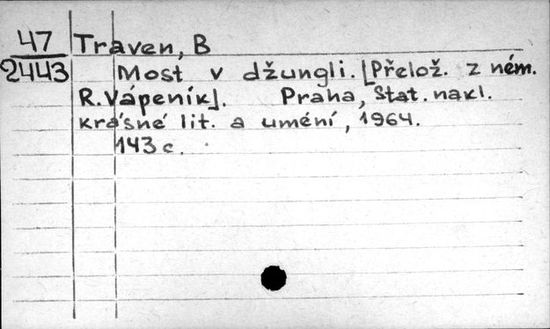 47 Traven, B
2443 Most v džungli. [Přelož. z něm.
R. Vápeník]. Praha, Stat. nakl.
krásné lit. a umění, 1964.
143 c.